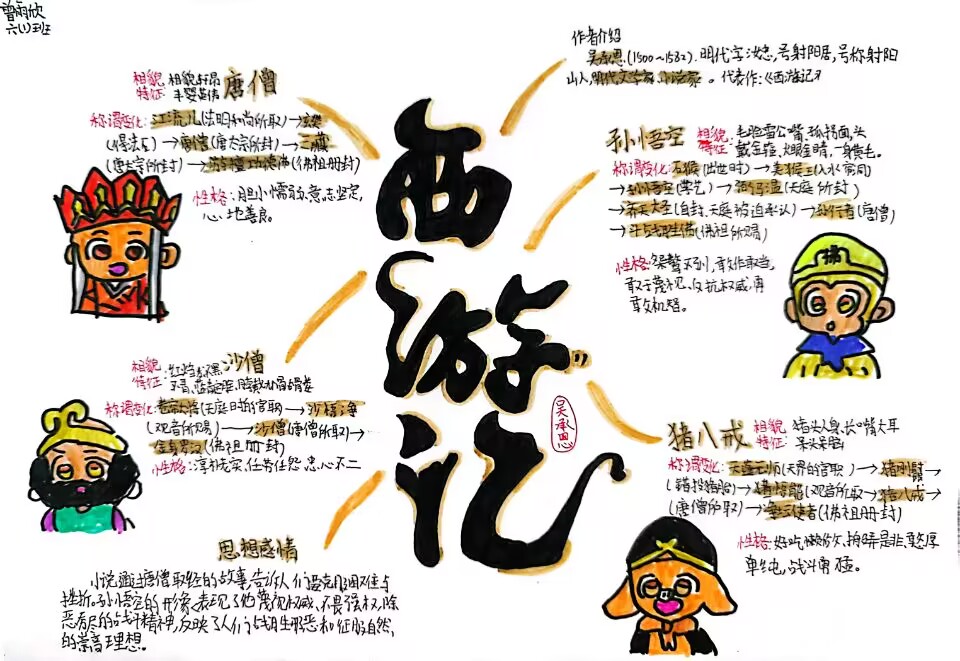 曾雨欣
六(1)班
西游记
吴承恩
作者介绍
吴承恩(1500～1582).明代字汝忠,号射阳居,号称射阳
山人,明代文学家、小说家。代表作:《西游记》
唐僧
相貌 相貌轩昂
特征: 丰姿英伟
称谓变化:江流儿(法明和尚所取)→玄奘
→唐僧(唐太宗所封)→三藏
(唐太宗所封)→旃檀功德佛(佛祖册封)
性格:胆小懦弱、意志坚定,
心地善良。
孙悟空
相貌 毛脸雷公嘴,孤拐面,头
特征: 戴金箍,火眼金睛,一身黄毛。
称谓变化:石猴(出世时)→美猴王
→孙悟空(学艺)→弼马温(天庭所封)
→齐天大圣(自封,天庭被迫承认)→孙行者(唐僧)
→斗战胜佛(佛祖所赐)
性格:桀骜不驯,敢作敢当,
敢于蔑视、反抗权威,勇
敢机智。
沙僧
相貌
特征:
称谓变化:卷帘大将(天庭时的官职)→沙悟净
(观音所赐)→沙僧(唐僧所取)→
金身罗汉(佛祖册封)
性格:淳朴老实,任劳任怨 忠心不二
猪八戒
相貌 猪头人身,长嘴大耳
特征: 呆头呆脑
称谓变化:天蓬元帅(天界的官职)→猪刚鬣→
(错投猪胎)→猪悟能(观音所取)→猪八戒→
(唐僧所取)→净坛使者(佛祖册封)
性格:好吃懒做、搬弄是非、憨厚
单纯,战斗勇猛。
思想感情
小说通过唐僧取经的故事,告诉人们要克服困难与
挫折。孙悟空的形象,表现了他蔑视权威、不畏强权,除
恶务尽的战斗精神,反映了人们战胜邪恶和征服自然,
的崇高理想。